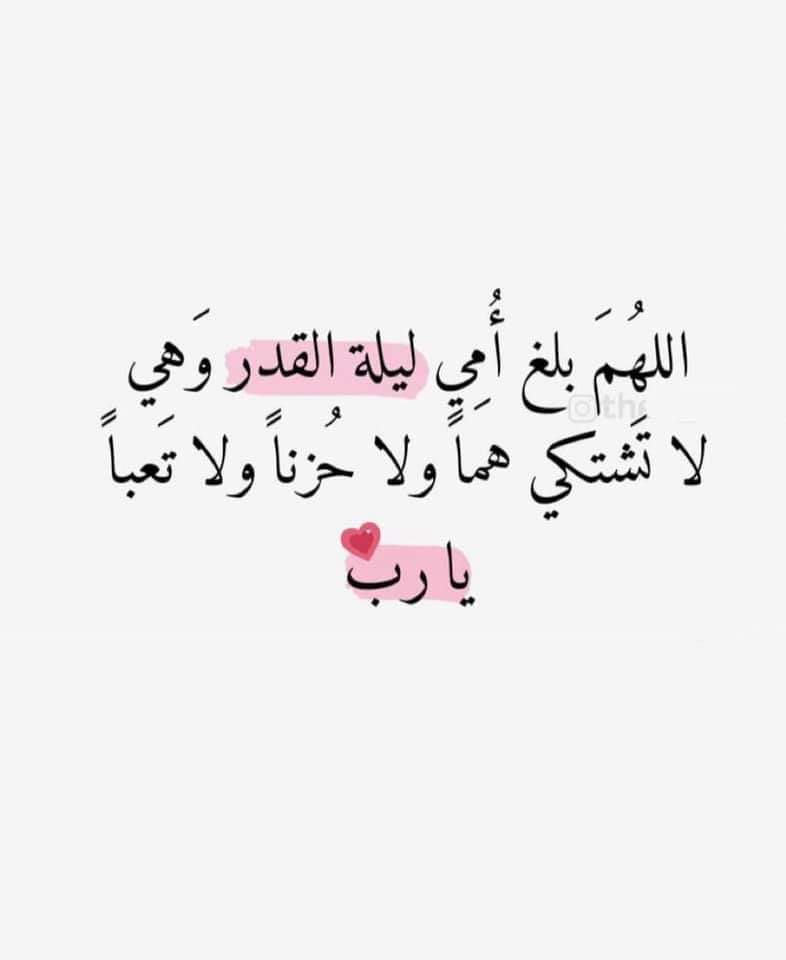 اللهُمَ بلغ أُمي ليلة القدر وَهي
لا تَشتكي هَماً ولا حُزناً ولا تَعباً
يا رب